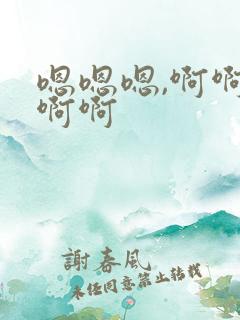 嗯嗯嗯,啊啊
啊啊
謝春風
未经同意禁止转载